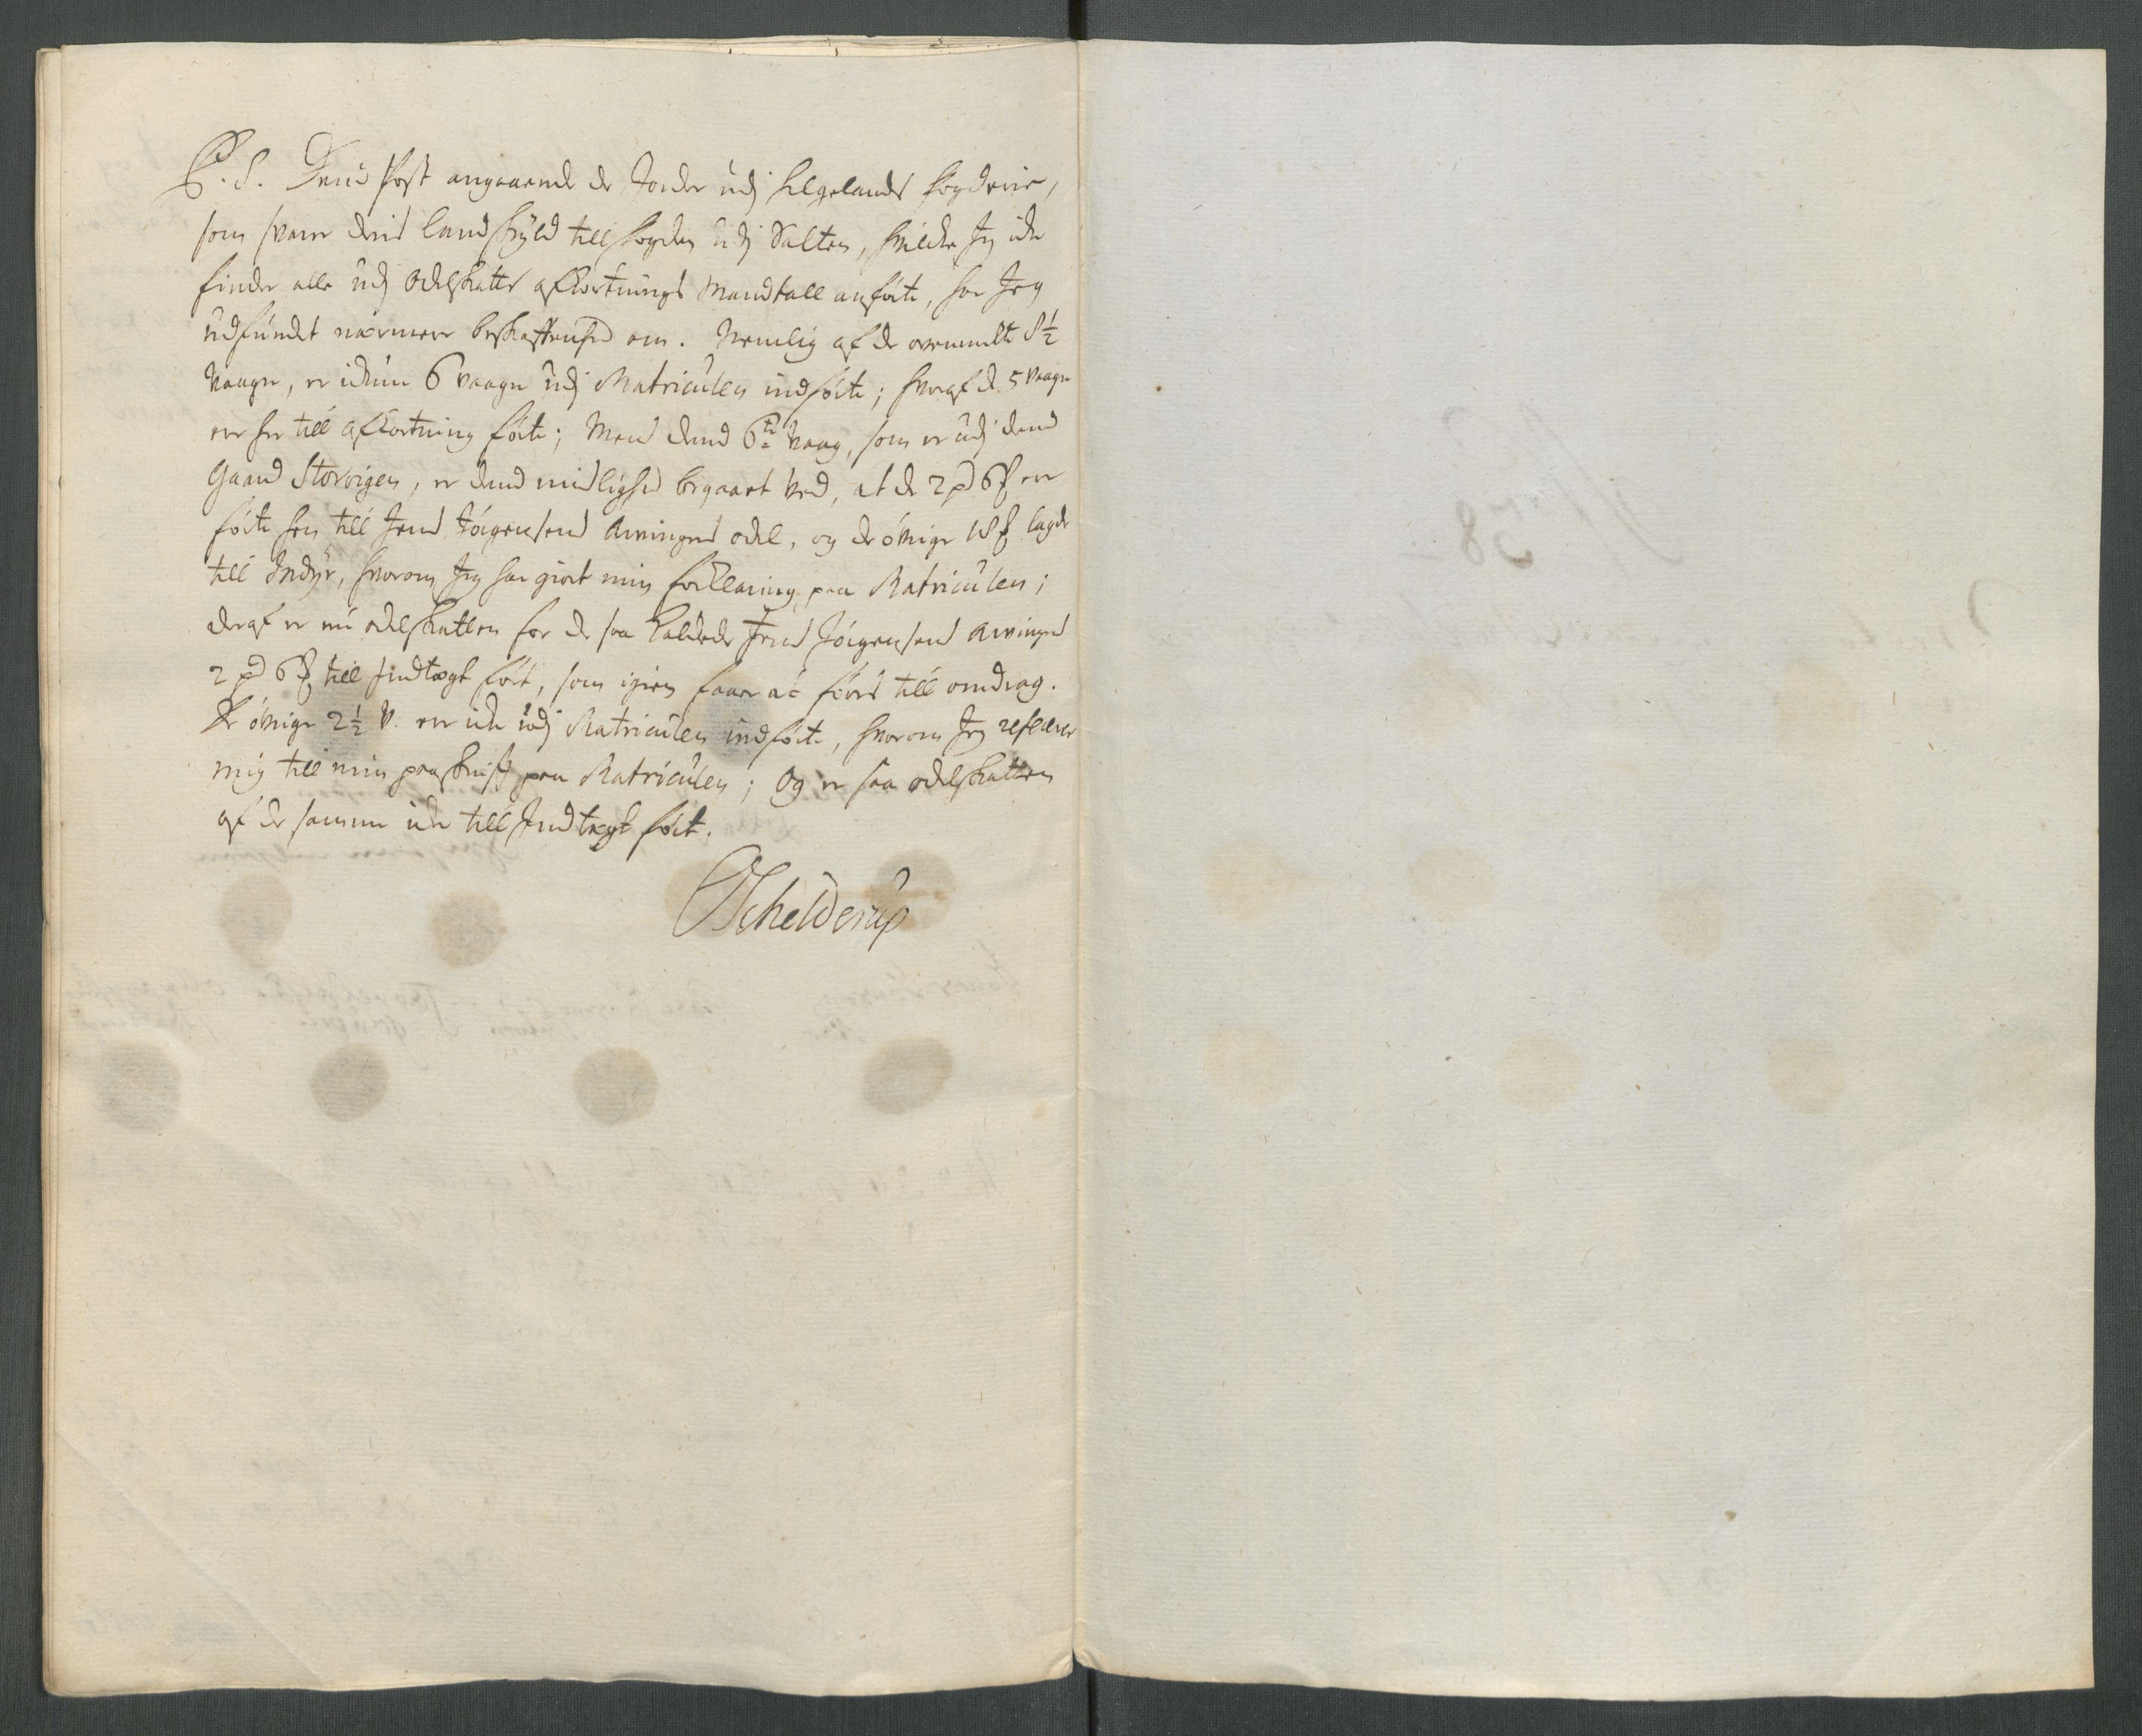 P.S. Dend Post angaaende de Jorder udj Helgelands fogderie,
som svarer deris landskyld till fogden udj Salten, hvilcke Jeg icke
finder alle udj Odelskatts afkortnings Mandtall anførte, har Jeg
udfundet nærmere beskaffenhed om. Nemlig af de ommelte 8½
Vaager, er ickun 6 vaager udj Matriculen indførte; hvoraf de 5 vaager
ere her till afkortning førte; Mend dend 6te Vaag, som er udj dend
Gaard Storvigen, er dend medlighed begaaet ved, at de 2 pd 6 ℔ ere
førte hen till Jens Jørgensens Arvingers odel, og de øfrige 18 ℔ lagde
till Indyr, hvorom Jeg har giort min forklaring paa Matriculen;
deraf er nu odelskatten for de saa kaldede Jens Jørgensens Arvinger
2 pd 6 ℔ till Indtægt ført, som igien faaer at føris till omdrag.
De øfrige 2½ V. ere icke udj Matriculen indførte, hvorom Jeg refererer
mig till min paaskrift paa Matriculen; Og er saa odelskatten
af de samme icke till Indtægt ført.
Schelderup